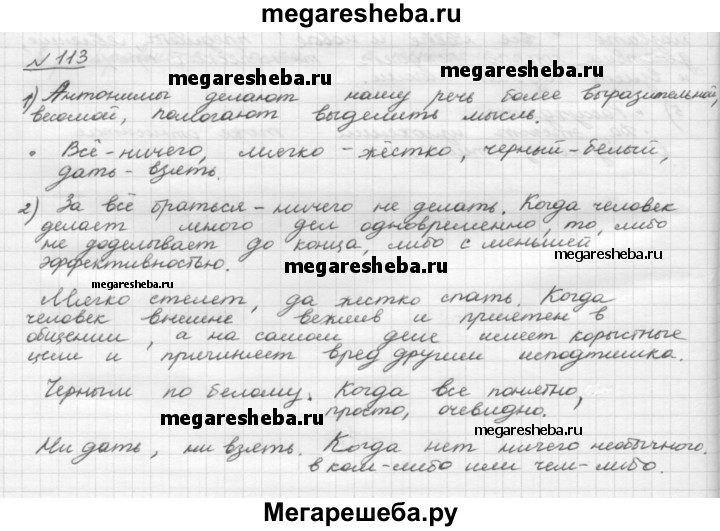 megaresheba.ru
N 113
megaresheba.ru
1) Антонимы делают нашу речь более выразительной,
весомой, помогают выделить мысль.
megaresheba.ru
• Всё-ничего, мягко-жёстко, черный-белый,
дать-взять.
2) За всё браться-ничего не делать. Когда человек
делает много дел одновременно, то, либо
не доделывает до конца, либо с меньшей
эффективностью.
megaresheba.ru
megaresheba.ru
megaresheba.ru
Мягко стелет, да жестко спать. Когда
человек внешне вежлив и приятен в
общении, а на самом деле имеет корыстные
цели и причиняет вред другим исподтишка.
Черным по белому. Когда все понятно,
просто, очевидно.
megaresheba.ru
megaresheba.ru
Ни дать, ни взять. Когда нет ничего необычного.
в ком-либо или чем-либо.
Мегарешеба.ру